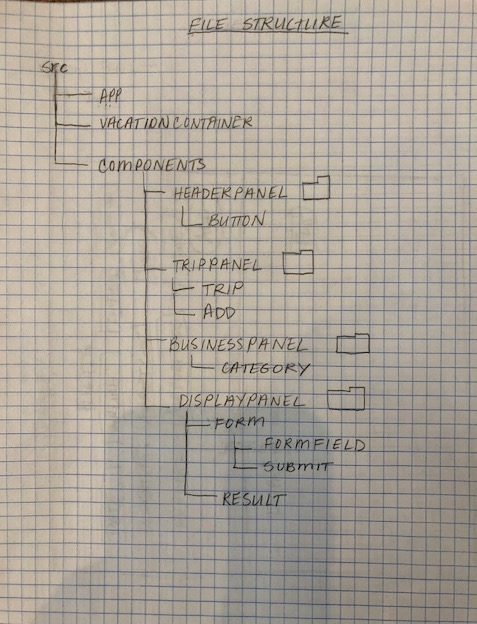 FILE STRUCTURE
src
APP
VACATIONCONTAINER
COMPONENTS
HEADERPANEL
BUTTON
TRIPPANEL
TRIP
ADD
BUSINESSPANEL
CATEGORY
DISPLAYPANEL
FORM
FORMFIELD
SUBMIT
RESULT